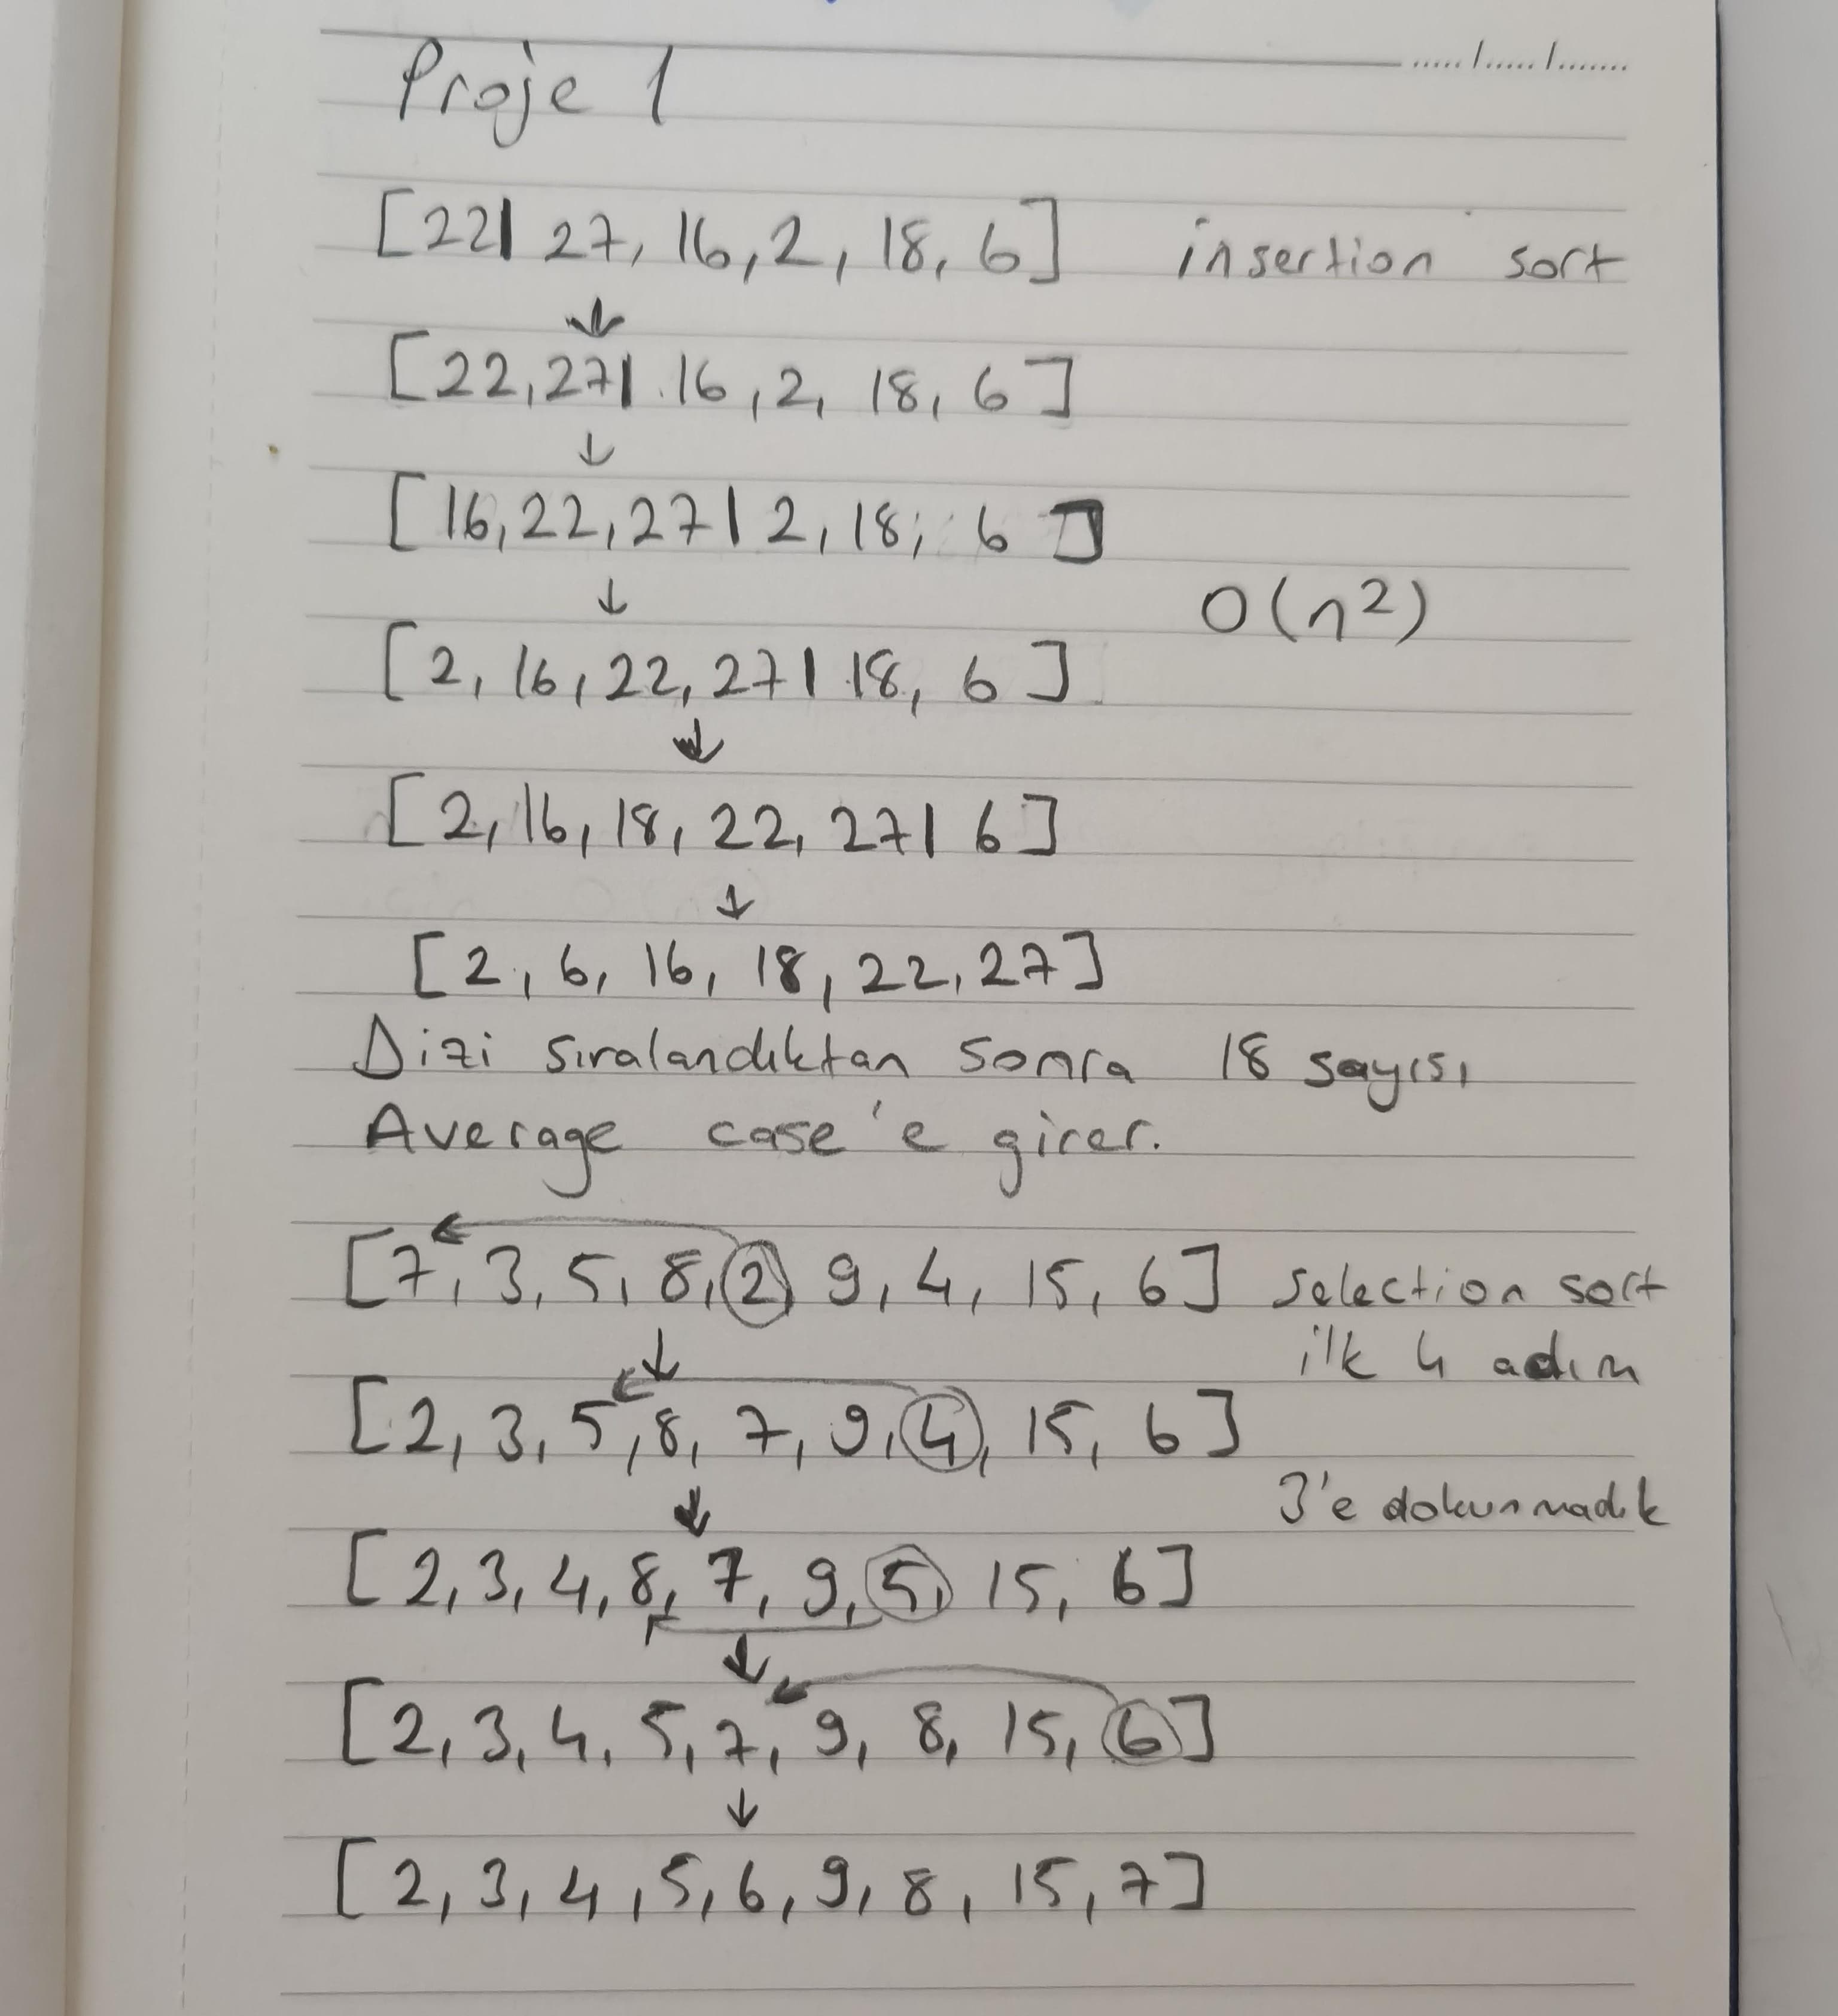 ..... / ..... / .......
Proje 1
[22| 27, 16, 2, 18, 6] insertion sort
↓
[22, 27| 16, 2, 18, 6]
↓
[16, 22, 27 | 2, 18, 6]
↓
O(n²)
[2, 16, 22, 27 | 18, 6]
↓
[2, 16, 18, 22, 27 | 6]
↓
[2, 6, 16, 18, 22, 27]
Dizi sıralandıktan sonra 18 sayısı
Average case'e girer.
[7, 3, 5, 8, 2, 9, 4, 15, 6] Selection sort
↓
ilk 4 adım
[2, 3, 5, 8, 7, 9, 4, 15, 6]
↓
3'e dokunmadık
[2, 3, 4, 8, 7, 9, 5, 15, 6]
↓
[2, 3, 4, 5, 7, 9, 8, 15, 6]
↓
[2, 3, 4, 5, 6, 9, 8, 15, 7]